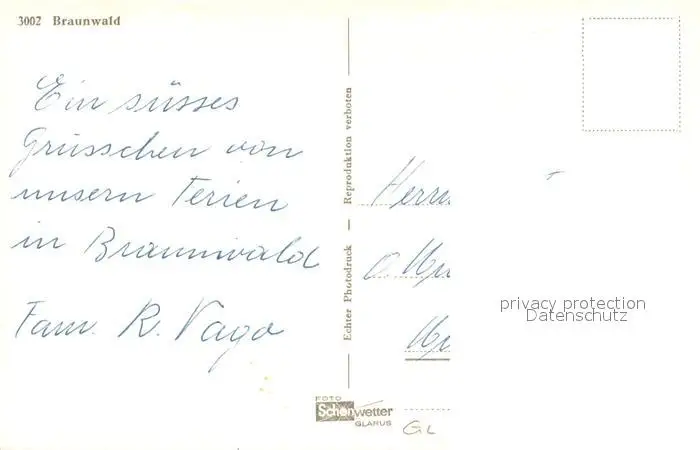 3002 Braunwald
Ein süsses
Grüsschen von
unsern Ferien
in Braunwald
Fam. R. Vago
Echter Photodruck — Reproduktion verboten
Herrn
privacy protection
Datenschutz
FOTO
Schönwetter
GLARUS
GL